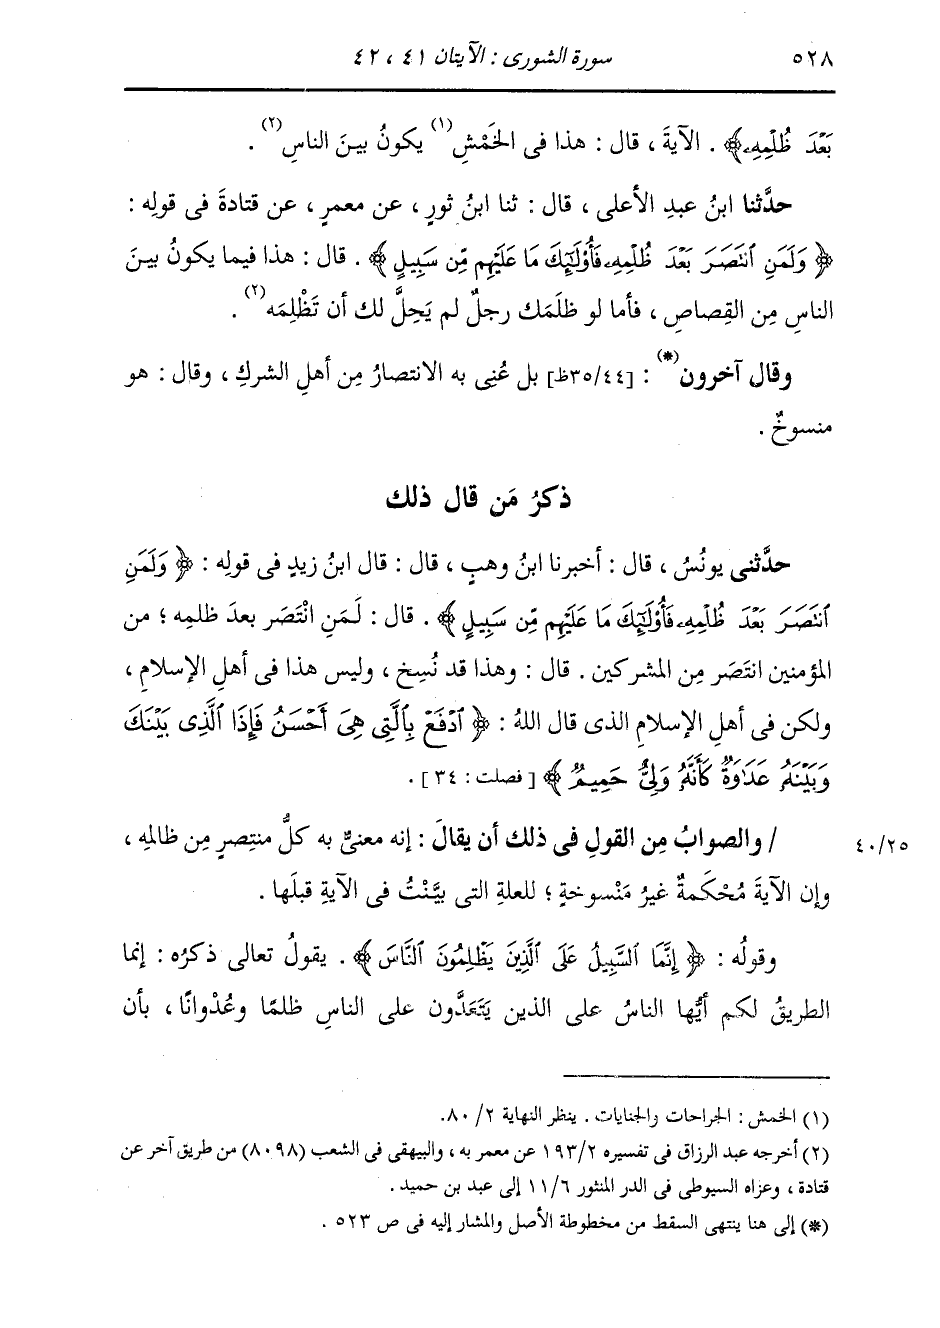 ٥٢٨ سورة الشورى : الآيتان ٤١ ، ٤٢
بَعْدَ ظُلْمِهِۦ﴾ . الآيةَ ، قال : هذا فى الخَمْشِ(١) يكونُ بينَ الناسِ(٢) .
حدَّثنا ابنُ عبدِ الأعلى ، قال : ثنا ابنُ ثورٍ ، عن معمرٍ ، عن قتادةَ فى قولِه :
﴿ وَلَمَنِ ٱنتَصَرَ بَعْدَ ظُلْمِهِۦ فَأُو۟لَٰٓئِكَ مَا عَلَيْهِم مِّن سَبِيلٍ ﴾ . قال : هذا فيما يكونُ بينَ
الناسِ مِن القِصاصِ ، فأما لو ظلَمَك رجلٌ لم يَحِلَّ لك أن تَظْلِمَه(٢) .
وقال آخرون(*) : [٣٥/٤٤ظ] بل عُنِى به الانتصارُ مِن أهلِ الشركِ ، وقال : هو
منسوخٌ .
ذكرُ مَن قال ذلك
حدَّثنى يونُسُ ، قال : أخبرنا ابنُ وهبٍ ، قال : قال ابنُ زيدٍ فى قولِه : ﴿ وَلَمَنِ
ٱنتَصَرَ بَعْدَ ظُلْمِهِۦ فَأُو۟لَٰٓئِكَ مَا عَلَيْهِم مِّن سَبِيلٍ ﴾ . قال : لَمَنِ انْتَصَر بعدَ ظلمِه ؛ من
المؤمنين انتَصَر مِن المشركين . قال : وهذا قد نُسِخ ، وليس هذا فى أهلِ الإسلامِ ،
ولكن فى أهلِ الإسلامِ الذى قال اللهُ : ﴿ ٱدْفَعْ بِٱلَّتِى هِىَ أَحْسَنُ فَإِذَا ٱلَّذِى بَيْنَكَ
وَبَيْنَهُۥ عَدَٰوَةٌ كَأَنَّهُۥ وَلِىٌّ حَمِيمٌ ﴾ [ فصلت : ٣٤ ] .
٤٠/٢٥ / والصوابُ مِن القولِ فى ذلك أن يقالَ : إنه معنىٌّ به كلُّ منتصِرٍ مِن ظالمِه ،
وإن الآيةَ مُحْكَمةٌ غيرُ مَنْسوخةٍ ؛ للعلةِ التى بيَّنْتُ فى الآيةِ قبلَها .
وقولُه : ﴿ إِنَّمَا ٱلسَّبِيلُ عَلَى ٱلَّذِينَ يَظْلِمُونَ ٱلنَّاسَ ﴾ . يقولُ تعالى ذكرُه : إنما
الطريقُ لكم أيُّها الناسُ على الذين يَتَعَدَّون على الناسِ ظلمًا وعُدْوانًا ، بأن
(١) الخمش : الجراحات والجنايات . ينظر النهاية ٢/ ٨٠.
(٢) أخرجه عبد الرزاق فى تفسيره ١٩٣/٢ عن معمر به ، والبيهقى فى الشعب (٨٠٩٨) من طريق آخر عن
قتادة ، وعزاه السيوطى فى الدر المنثور ١١/٦ إلى عبد بن حميد .
(*) إلى هنا ينتهى السقط من مخطوطة الأصل والمشار إليه فى ص ٥٢٣ .